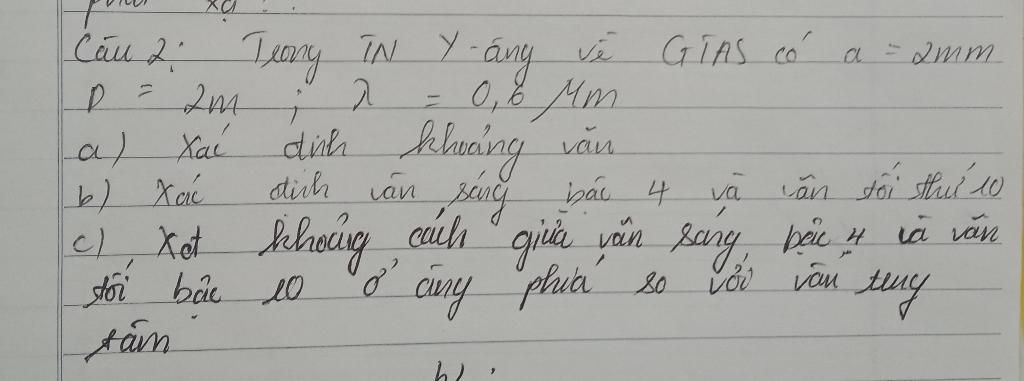 Câu 2: Trong TN Y-âng về GTAS có a = 2mm
D = 2m ; λ = 0,6 μm
a) Xác định khoảng vân
b) Xác định vân sáng bậc 4 và vân tối thứ 10
c) Xét khoảng cách giữa vân sáng bậc 4 và vân
tối bậc 10 ở cùng phía so với vân trung
tâm
b)